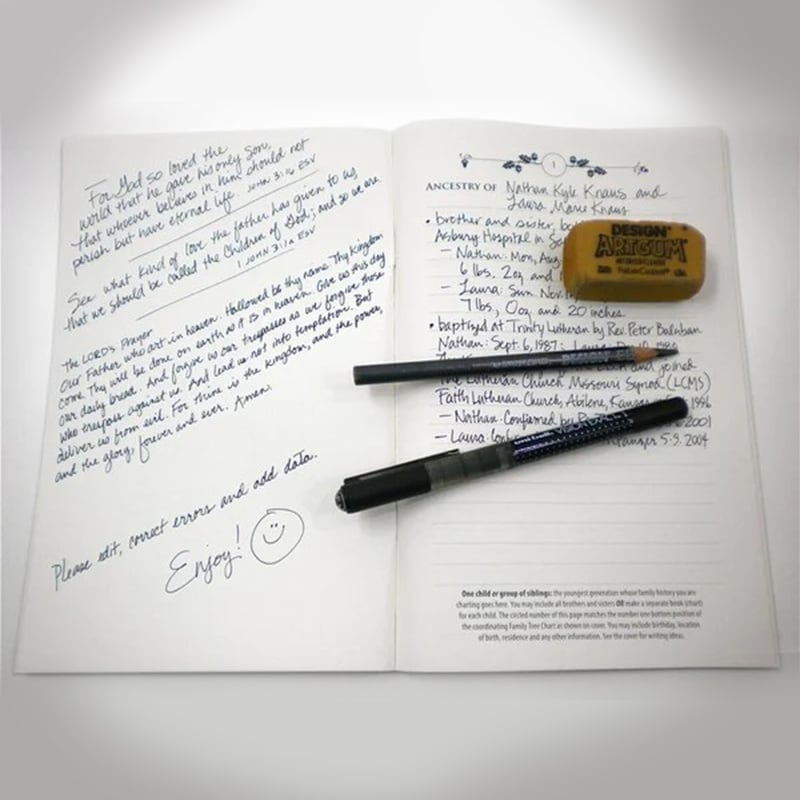 For God so loved the
world that he gave his only Son,
that whoever believes in him should not
perish but have eternal life. JOHN 3:16 ESV
See what kind of love the father has given to us
that we should be called the Children of God; and so we are.
1 JOHN 3:1a ESV
The LORD's Prayer
Our Father who art in heaven. Hallowed be thy name. Thy Kingdom
come Thy will be done on earth as it is in heaven. Give us this day
our daily bread. And forgive us our trespasses as we forgive those
who trespass against us. And lead us not into temptation. But
deliver us from evil. For thine is the kingdom, and the power,
and the glory, forever and ever. Amen.
Please edit, correct errors and add data.
Enjoy!
1
ANCESTRY OF Nathan Kyle Knaus and
Laura Marie Knaus
• brother and sister, bo
Asbury Hospital in Sa
– Nathan: Mon, Aug
6 lbs. 2oz, and 1
– Laura: Sun. Nov. 1
7 lbs, 0oz, and 20 inches.
• baptized at Trinity Lutheran by Rev. Peter Balaban
Nathan: Sept. 6, 1987; Laura:
and joined
The Lutheran Church Missouri Synod (LCMS)
Faith Lutheran Church, Abilene, Kansas 1996
– Nathan: Confirmed by 2001
– Laura: Con 5-9-2004
DESIGN
ARTGUM
Faber-Castell
DESIGN
uni-ball VISION EXACT
One child or group of siblings: the youngest generation whose family history you are
charting goes here. You may include all brothers and sisters OR make a separate book (chart)
for each child. The circled number of this page matches the number one bottom position of
the coordinating Family Tree Chart as shown on cover. You may include birthday, location
of birth, residence and any other information. See the cover for writing ideas.